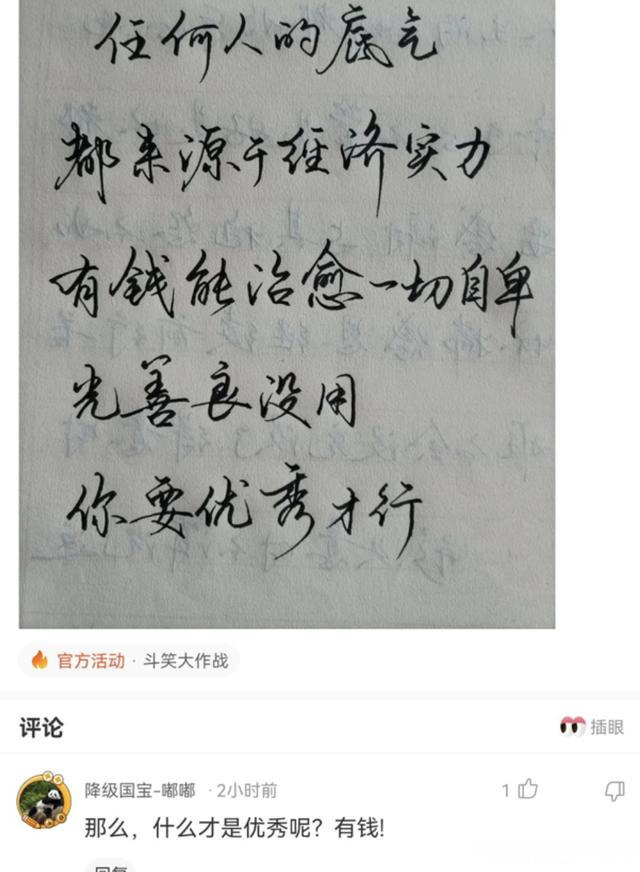 任何人的底气
都来源于经济实力
有钱能治愈一切自卑
光善良没用
你要优秀才行
官方活动 · 斗笑大作战
评论
插眼
降级国宝-嘟嘟 · 2小时前
1
那么，什么才是优秀呢？有钱!
回复